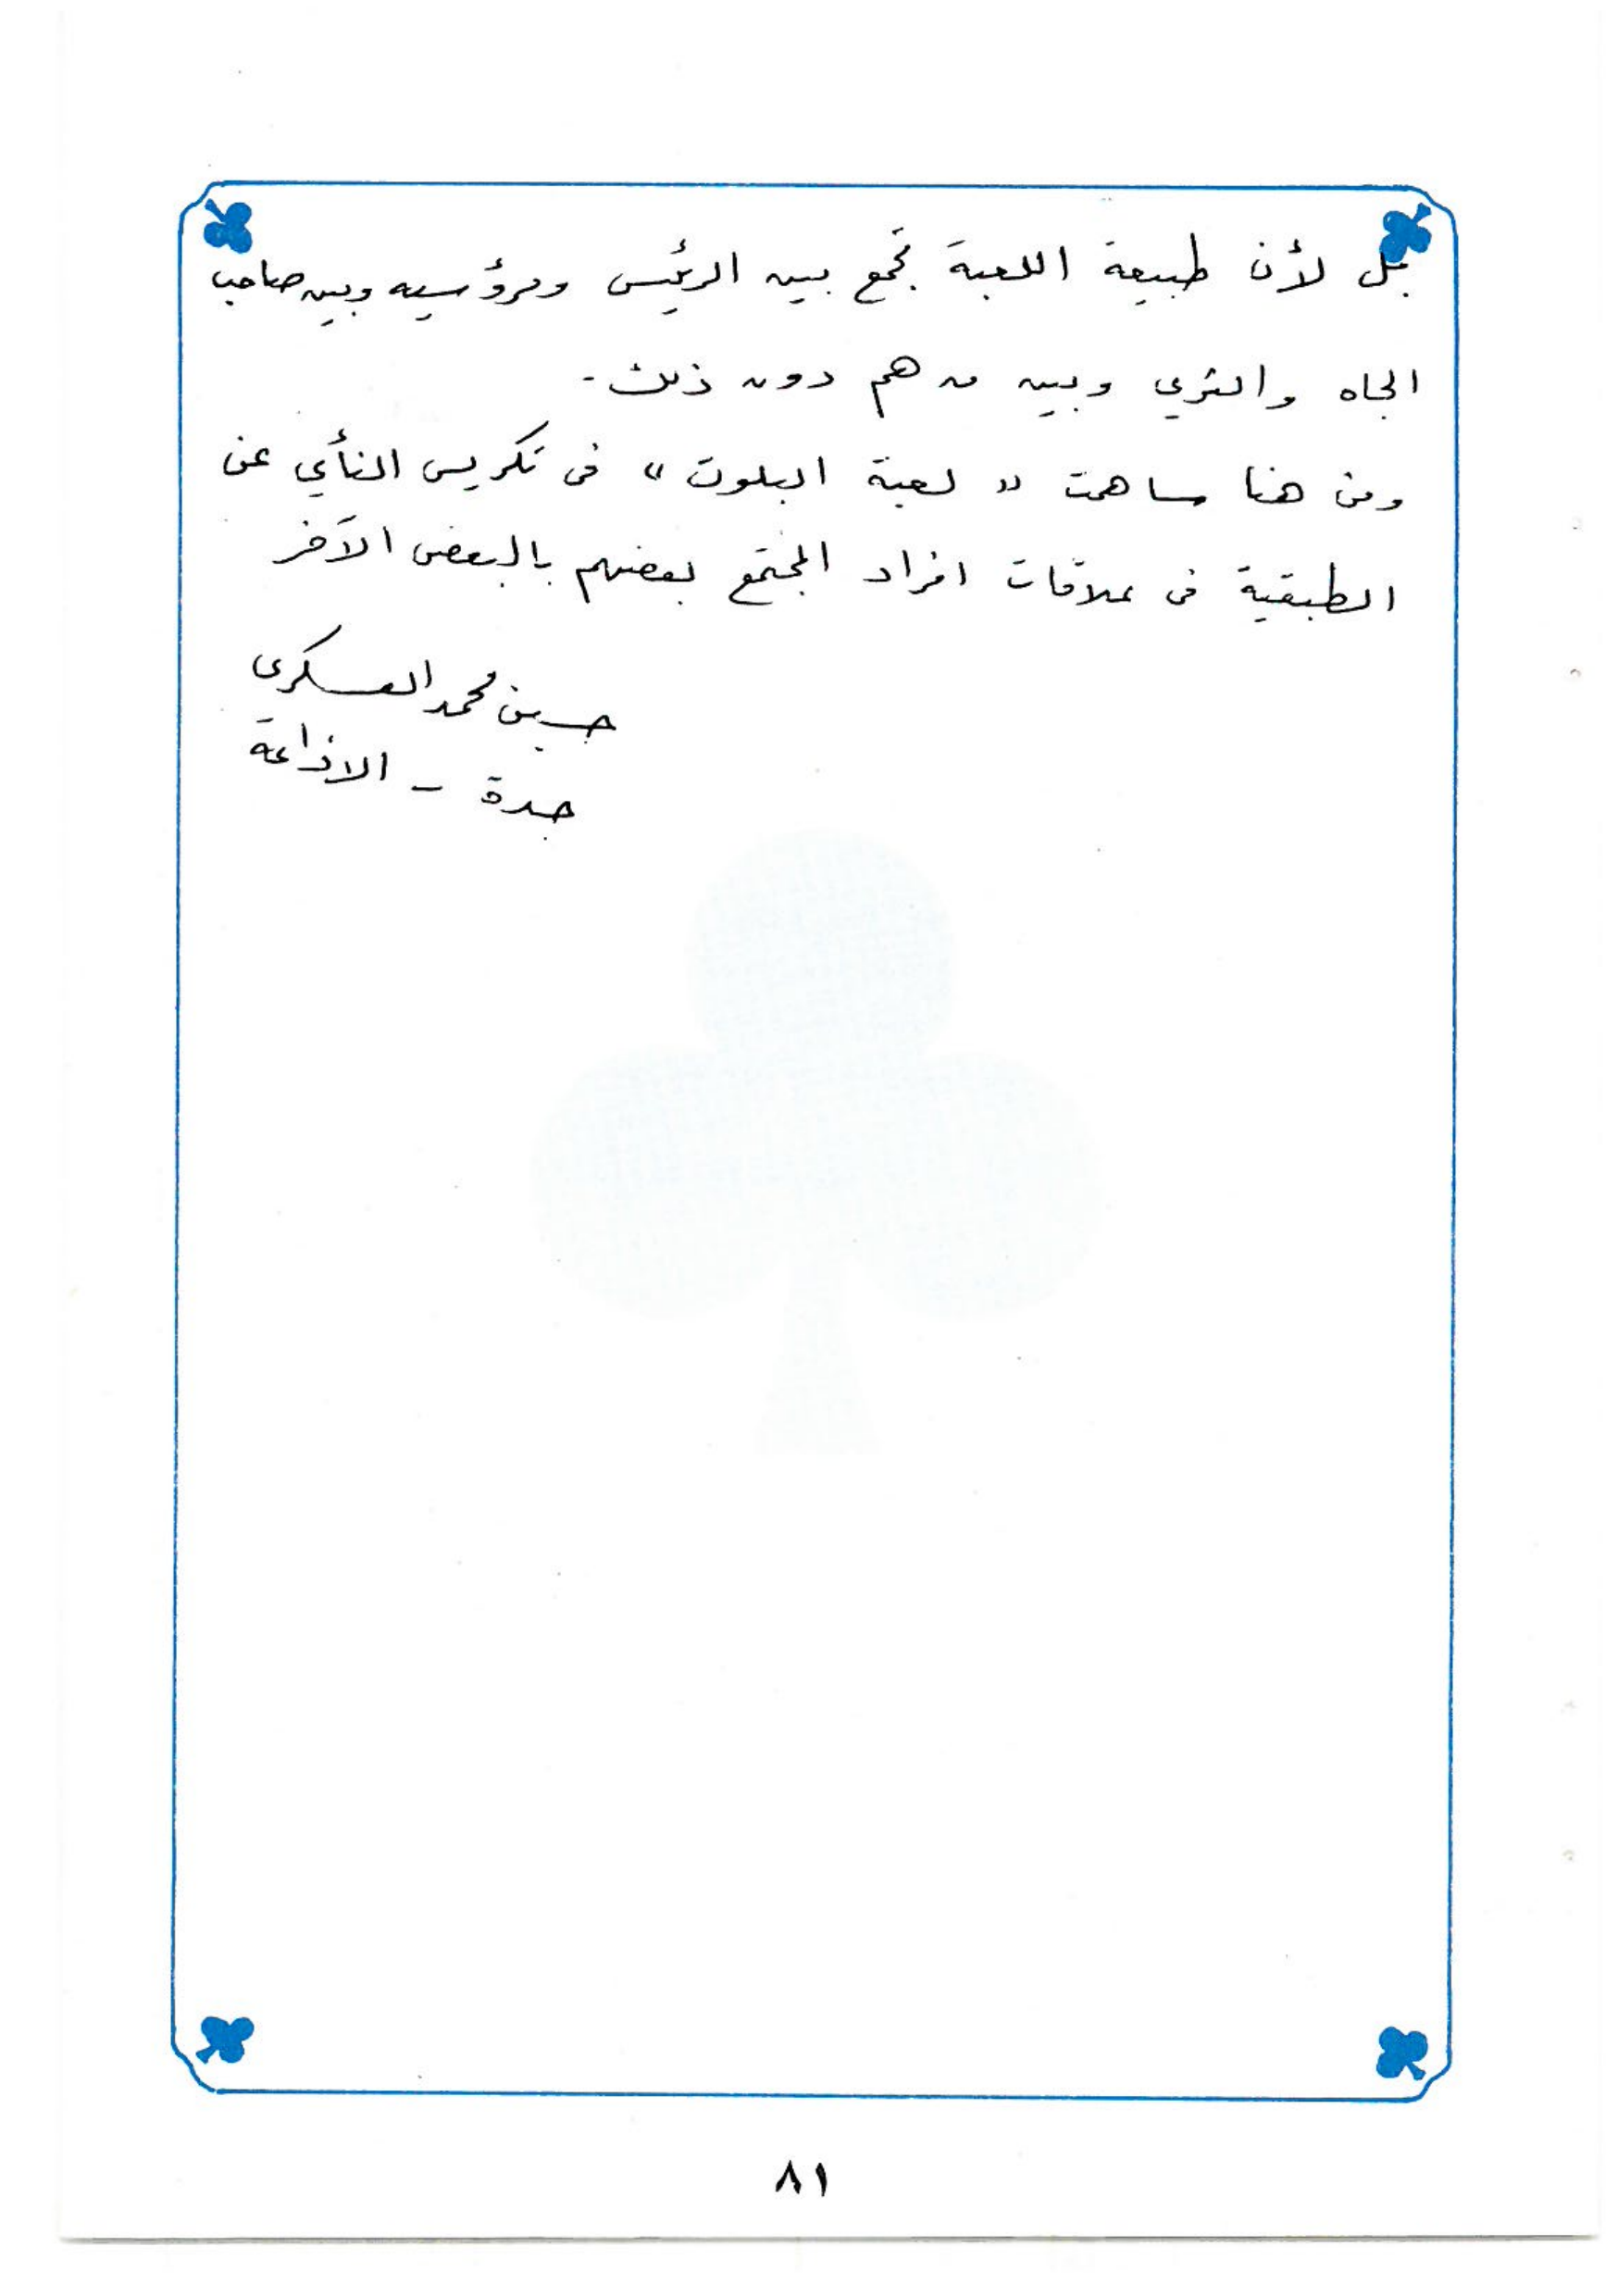 بل لأن طبيعة اللعبة تجمع بين الرئيس ومرؤسيه وبين صاحب
الجاه والثري وبين من هم دون ذلك.
ومن هنا ساهمت « لعبة البلوت » فى تكريس النأي عن
الطبقية فى علاقات افراد المجتمع بعضهم بالبعض الآخر
حسين محمد العسكرى
جدة - الاذاعة
٨١